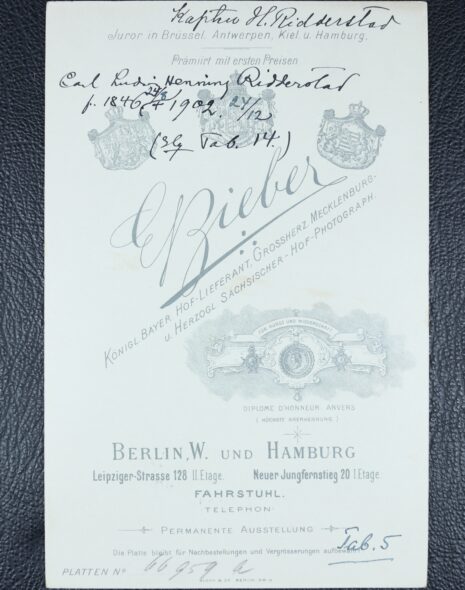 Kapten H. Ridderstad
Juror in Brüssel, Antwerpen, Kiel u. Hamburg.
Prämiirt mit ersten Preisen
Carl Ludvig Henning Ridderstad
f. 1846 24/8 † 1902. 24/12
Tab. 14.)
E. Bieber
Königl. Bayer. Hof-Lieferant, Grossherz. Mecklenburg.
u. Herzogl. Sächsischer-Hof-Photograph.
FÜR KUNST UND WISSENSCHAFT
DIPLOME D'HONNEUR ANVERS
(HÖCHSTE ANERKENNUNG)
BERLIN, W. UND HAMBURG
Leipziger-Strasse 128 II. Etage. Neuer Jungfernstieg 20 I Etage.
FAHRSTUHL.
TELEPHON
PERMANENTE AUSSTELLUNG
Tab. 5
Die Platte bleibt für Nachbestellungen und Vergrösserungen aufbewahrt.
PLATTEN No 66959 a